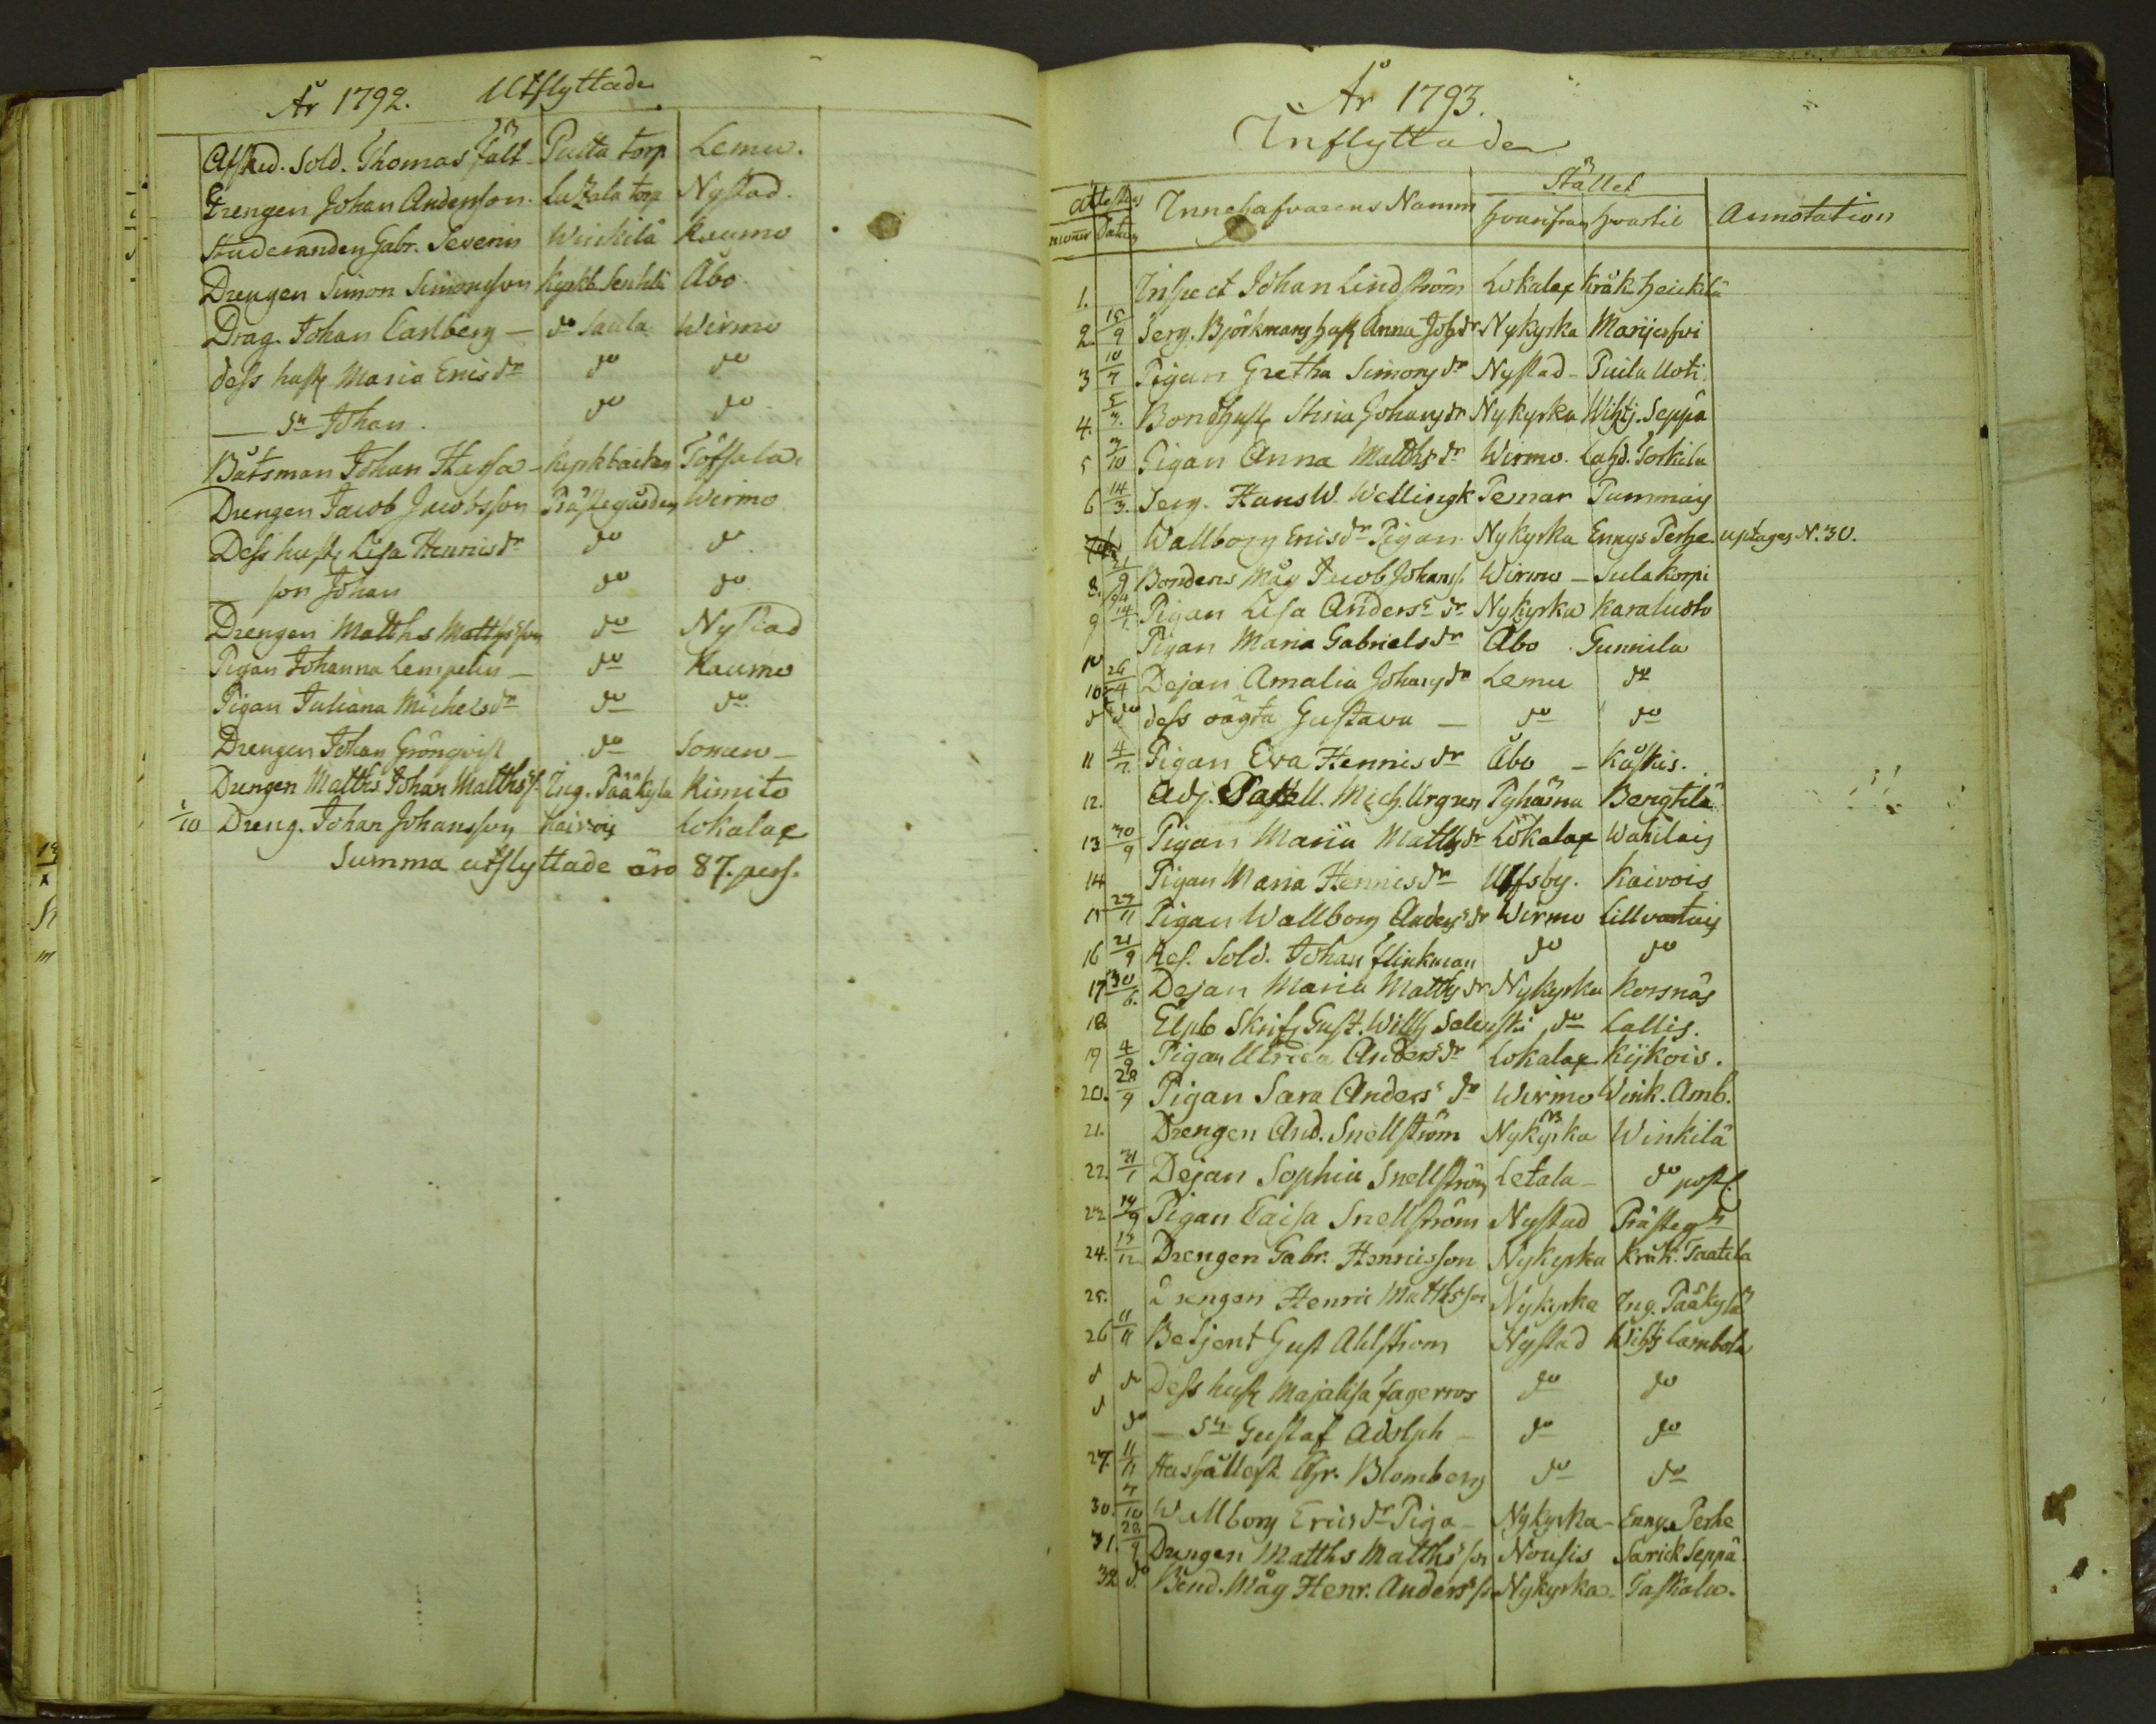 År 1792. Utflyttade
Afsked. Sold. Thomas Fält Puita torp Lemu.
Drengen Johan Andersson. Luzala torp Nystad.
Studeranden Gabr. Severin Winkilä Raumo
Drengen Simon Simonsson Kyrkb. Åbo
Drag. Johan Carlberg — do Saula Wirmo
dess hust Maria Ericsdr do do
— Sn Johan. do do
Båtsman Johan Hassa — Kyrkbacken Töfsala.
Drengen Jacob Jacobsson Prästegården Wirmo
Dess hust. Lisa Henricsdr do do
son Johan do do
Drengen Matths Matthsson do Nystad
Pigan Johanna Lempelin — do Raumo
Pigan Juliana Michelsdr do do
Drengen Johan Grönqvist do
Drengen Matths Johan Mattsss. Ing. Pääkylä Kimito
1/10 Dreng. Johan Johansson Kaivois Lokalax
Summa utflyttade äro 87. pers.
År 1793.
Inflyttade
Attesters Innehafvarens Namn Stället Annotation
numer datum hvarifran hvartil
1. Inspect Johan Lindström Lokalax Kråk. Heickilä
2. 15/9 Serg. Björkmans hust Anna Johdr Nykyrka
3 10/7 Pigan Gretha Simonsdr Nystad — Puita Uoti
4. 5/3. Bondhust Stina Johansdr Nykyrka Wihtj. Seppä
5 3/10 Pigan Anna Matthsdr Wirmo. Lahd. Torkila
6 14/3. Serg. Hans W. Wellingk Pemar Pummais
Wallborg Ericsdr Pigan. Nykyrka Ennys Perhe. uptages N:30.
8. 21/9 Bondens Måg Jacob Johanss. Wirmo — Sulakorpi
9 14/1. Pigan Lisa Anders dr Nykyrka Karalusto
10 Pigan Maria Gabrielsdr Åbo Gunnila
10 26/4 Dejan Amalia Johansdr Lemu do
d do dess oägta Gustava — do do
11 4/7. Pigan Eva Henricsdr Åbo — Kåskis.
12. Adj. Past. Mich. Urgren Pyhämä Bengtilä
13 30/9 Pigan Maria Matthsdr Lökalax Wahilais
14 Pigan Maria Henricsdr Ulfsby. Kaivois
15 27/11 Pigan Wallborg Andersdr Wirmo
16 21/9 Res. Sold. Johan Flinkman do do
17 30/6. Dejan Maria Matthsdr Nykyrka Korsnäs
18. Gust. Willh do Lallis.
19 4/9 Pigan Ulrica Andersdr Lokalax Kijkois.
20. 28/9 Pigan Sara Anders dr Wirmo Wink. Amb.
21. Drengen And. Snellström Nykyrka Winkilä
22. 31/1 Dejan Sophia Snellström Letala — do
23 14/9 Pigan Caisa Snellström Nystad Prästegn
24. 13/12 Drengen Gabr. Henricsson Nykyrka Kråk. Taatila
25. Drengen Henric Matthsson Nykyrka Ing. Pääkylä
26 11/11 Betjent Gust Ahlstrom Nystad Wihtj Lambola
d do Dess hust Majalisa Fagerros do do
d do — Sn Gustaf Adolph — do do
27. 11/11 Hushållesk. Chr. Blomberg do do
30. 7/10 Wallborg Ericsdr Piga — Nykyrka — Ennys Perhe
31. 28/9 Drengen Matths Matthsson Nousis Sarick Seppä
32 do Bond. Måg Henr. Anderss Nykyrka — Taskala.